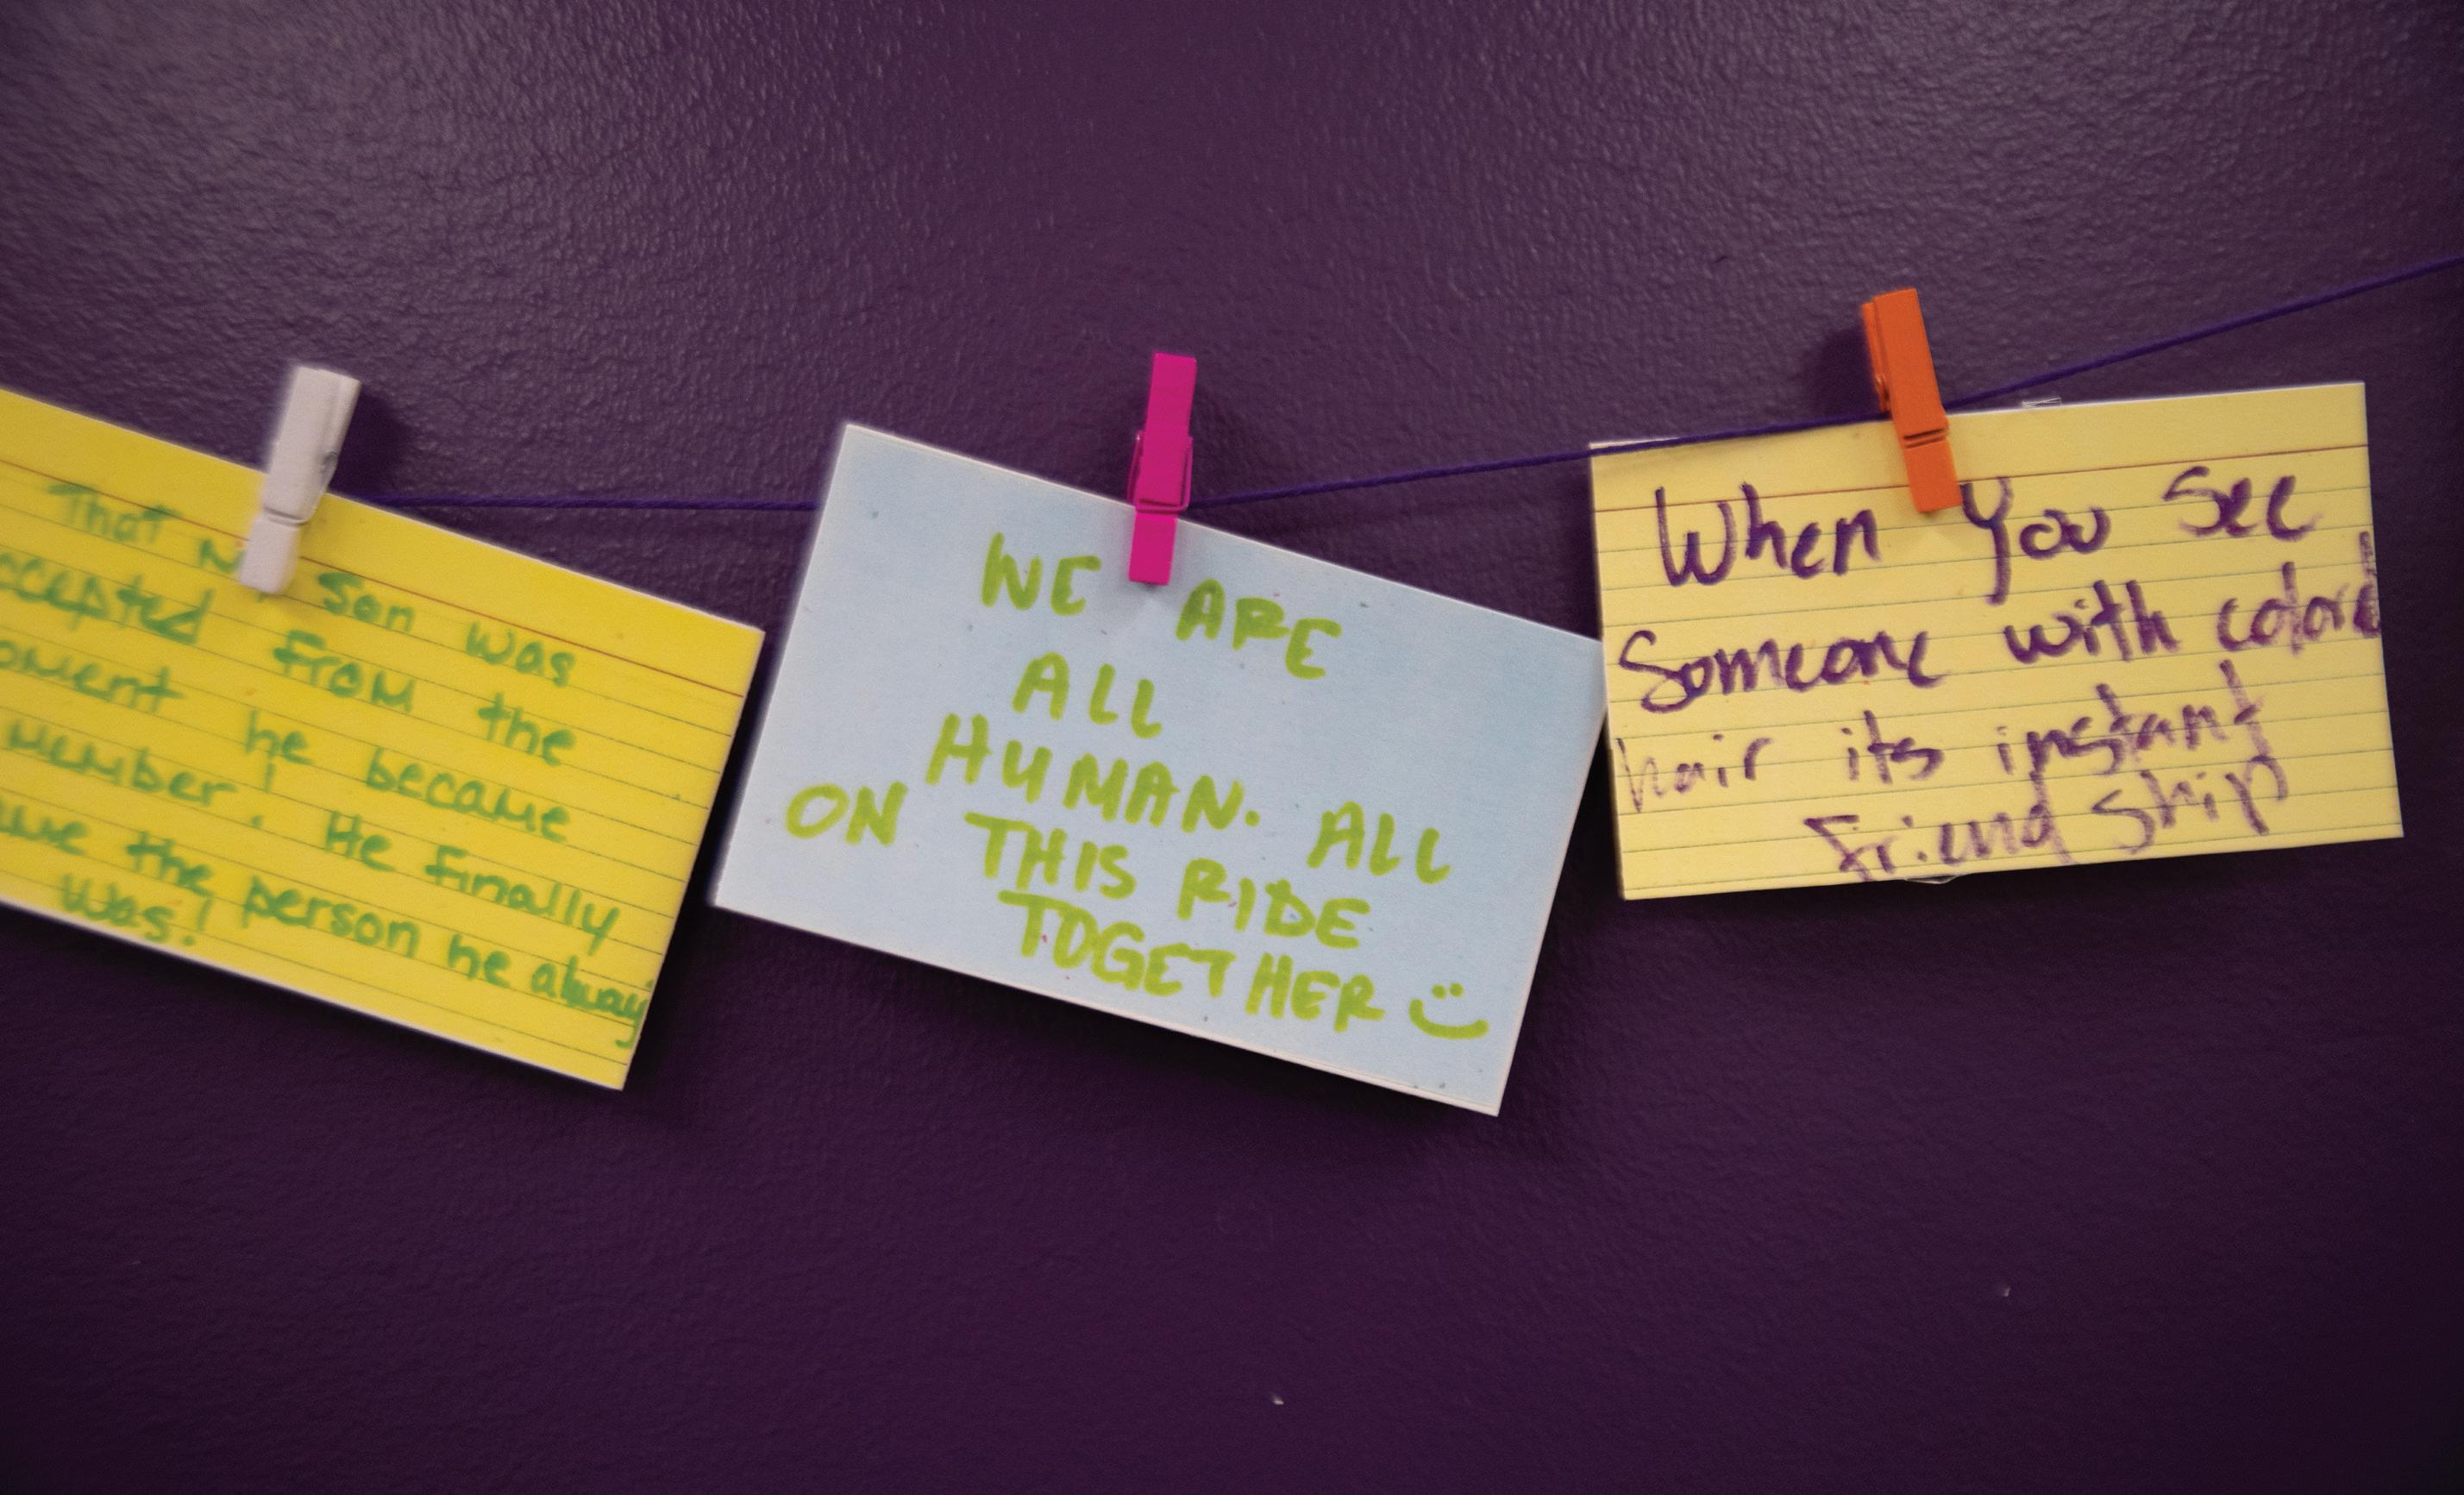 That My Son was
ccepted From the
oment he became
member! He Finally
ame the person he always
was!
WE ARE
ALL
HUMAN. ALL
ON THIS RIDE
TOGETHER :)
When You See
Someone with colord
hair its instant
Friend Ship